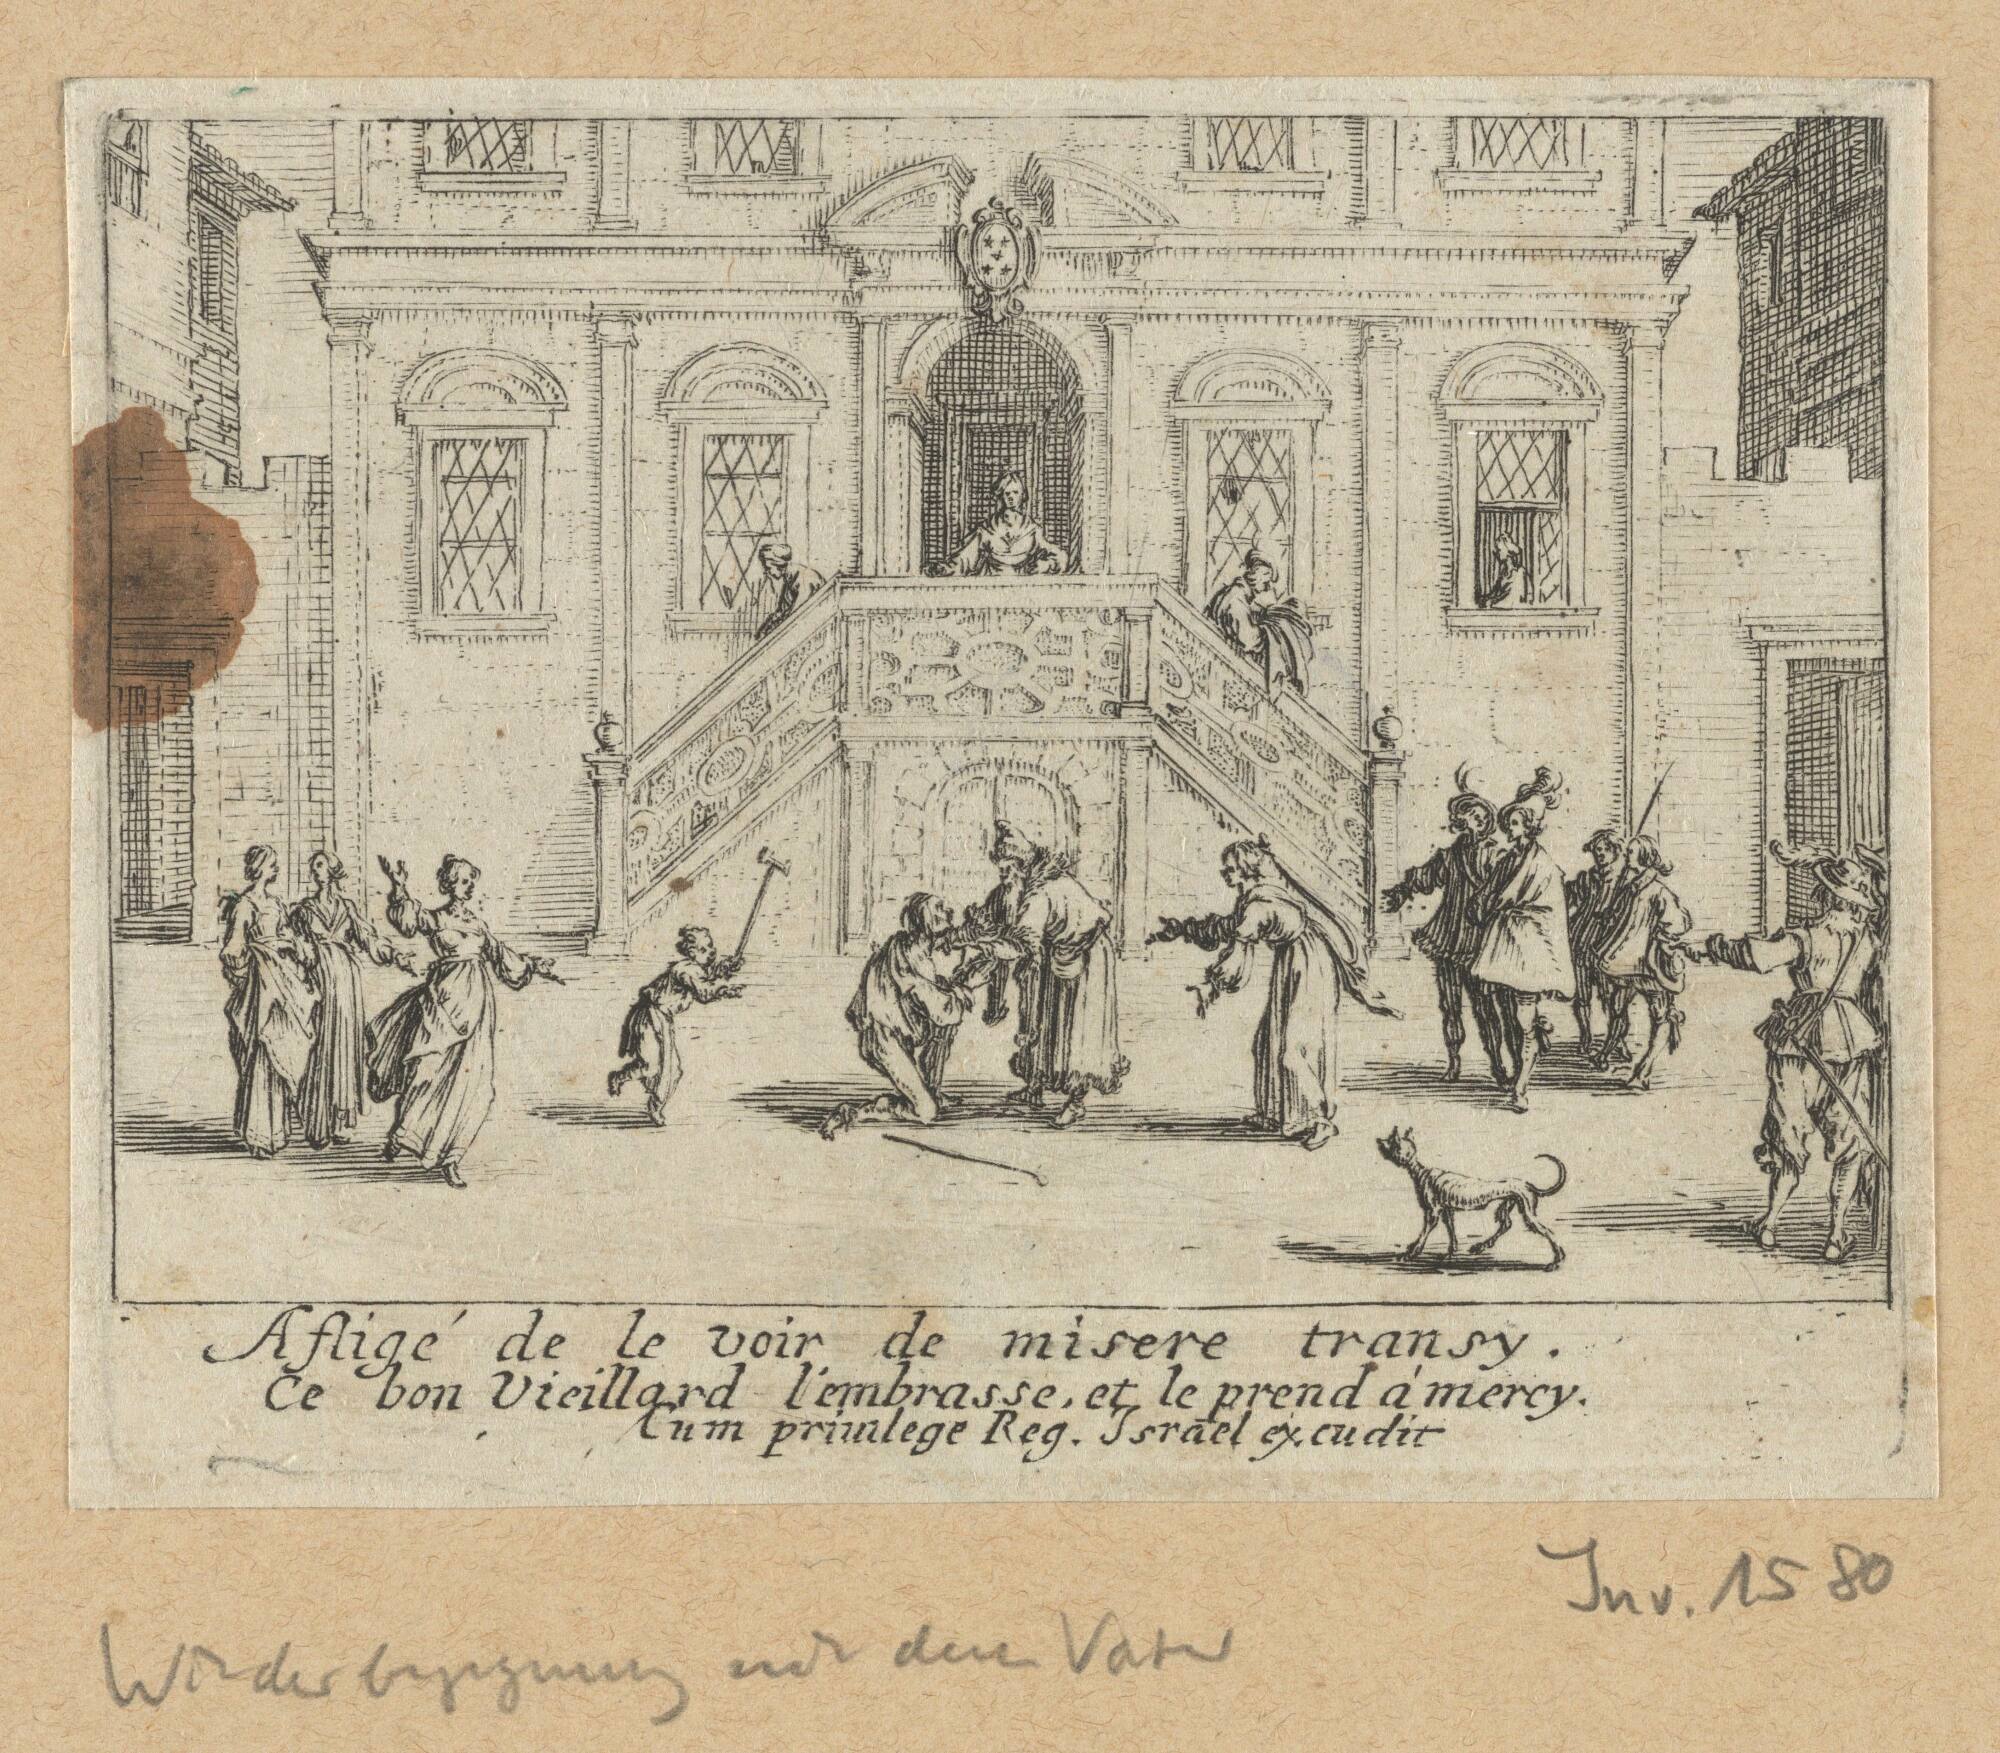 Afligé de le voir de misere transy.
Ce bon Vieillard l'embrasse, et le prend à mercy.
Cum priuilege Reg. Israel excudit
Inv. 1580
Wiederbegegnung mit dem Vater